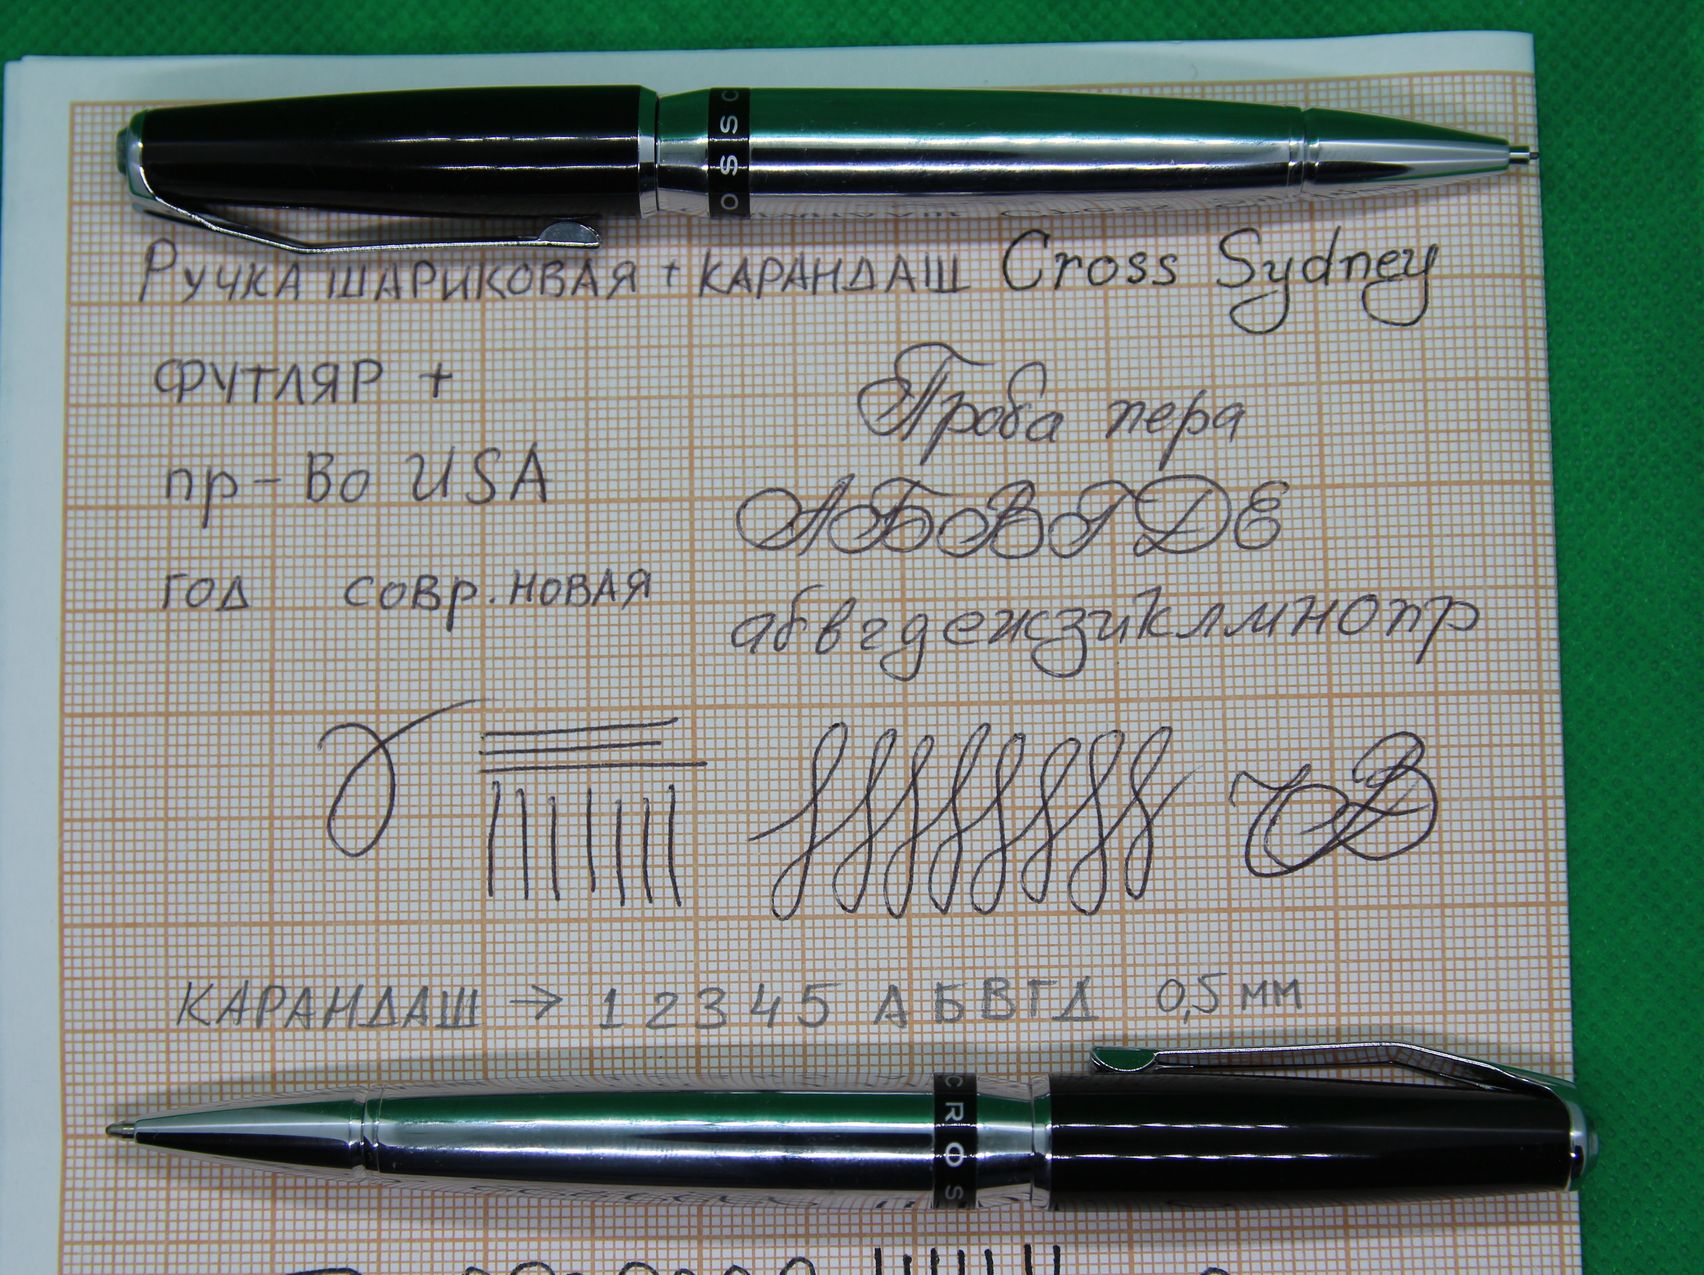 OSSO
Ручка шариковая + карандаш Cross Sydney
футляр +
Проба пера
пр-во USA
АБВГДЕ
год совр. новая
абвгдежзиклмнопр
КАРАНДАШ → 1 2 3 4 5 А Б В Г Д 0,5 мм
CROS